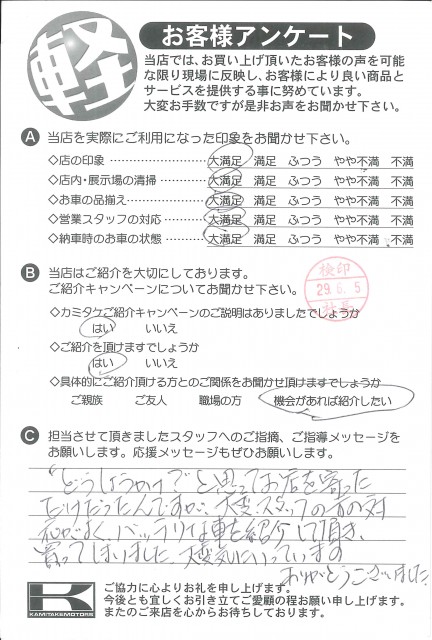 軽
お客様アンケート
当店では、お買い上げ頂いたお客様の声を可能
な限り現場に反映し、お客様により良い商品と
サービスを提供する事に努めています。
大変お手数ですが是非お声をお聞かせ下さい。
A 当店を実際にご利用になった印象をお聞かせ下さい。
◇店の印象 ……………………… 大満足 満足 ふつう やや不満 不満
◇店内・展示場の清掃 ………… 大満足 満足 ふつう やや不満 不満
◇お車の品揃え ………………… 大満足 満足 ふつう やや不満 不満
◇営業スタッフの対応 ………… 大満足 満足 ふつう やや不満 不満
◇納車時のお車の状態 ………… 大満足 満足 ふつう やや不満 不満
B 当店はご紹介を大切にしております。
ご紹介キャンペーンについてお聞かせ下さい。
検印
29.6.5
社長
◇カミタケご紹介キャンペーンのご説明はありましたでしょうか
はい いいえ
◇ご紹介を頂けますでしょうか
はい いいえ
◇具体的にご紹介頂ける方とのご関係をお聞かせ頂けますでしょうか
ご親族 ご友人 職場の方 機会があれば紹介したい
C 担当させて頂きましたスタッフへのご指摘、ご指導メッセージを
お願いします。応援メッセージもぜひお願いします。
"どうしようかな?"と思ってお店を寄った
だけだったんですが、大変スタッフの方の対
応がよく、バッチリな車を紹介して頂き、
買ってしまいました。大変気にいっています
ありがとうございました。
K
KAMITAKEMOTORS
ご協力に心よりお礼を申し上げます。
今後とも宜しくお引き立てご愛顧の程お願い申し上げます。
またのご来店を心からお待ちしております。